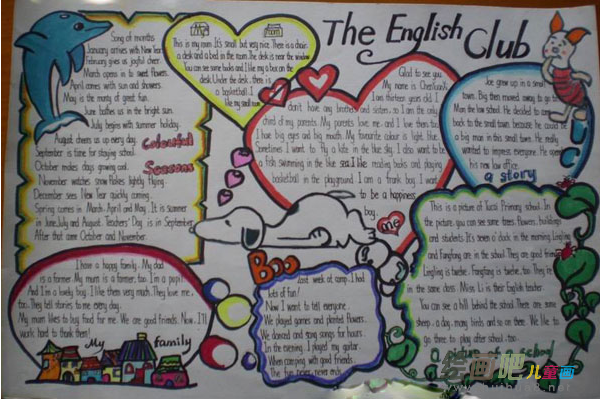 The English Club
Song of months
January arrives with New Year
February gives us joyful cheer
March opens in to sweet flowers.
April comes with sun and showers.
May is the monty of great fun.
June bathes us in the bright sun.
July begins with summer holiday.
August cheers us up every day.
September is time for staying school.
October makes days growing cool.
November watches snow flakes lightly flying
December sees New Year quickly coming.
Spring comes in March. April and May. It is summer
in June, July and August. Teachers' Day is in September.
After that come October and November
Colourful
Seasons
my
room
This is my room. It's small but very nice. There is a chair,
a desk and a bed in the room. The desk is near the window.
You can see some books and I like my a box on the
desk. Under the desk, there is
a basketball. I
like my small room.
Glad to see you
My name is
I am thirteen years old. I
don't have any brothers and sisters, so I am the only
child of my parents. My parents love me, and I love them too.
I have big eyes and big mouth. My favourite colour is light blue.
Sometimes I want to fly a kite in the blue sky. I also want to be
a fish swimming in the blue sea. I like reading books and playing
basketball in the playground. I am a frank boy. I want
to be a happiness
boy.
me
Joe grew up in a small
town. Big then moved away to go to
Man the law school. He decided to come
back to the small town, because he could be
a big man in this small town. He really
wanted to impress everyone. He opened
his new law office.
a story
I have a happy family. My dad
is a farmer. My mum is a farmer, too. I'm a pupil.
And I'm a lovely boy. I like them very much. They love me,
too. They tell stories to me every day.
My mum likes to buy food for me. We are good friends. Now, I'll
work hard to thank them!
My family
Boo
last week at camp. I had
lots of fun!
Now I want to tell everyone
We played games and planted flowers.
We danced and sang songs for hours
In the evening, I played my guitar.
When camping with good friends.
The fun never never ends
This is a picture of Primary school. In
the picture, you can see some trees, flowers, buildings
and students. It's seven o' clock in the morning. Lingling
and Fangfang are in the school. They are good friends.
Lingling is twelve. Fangfang is twelve, too. They're
in the same class. Miss Li is their English teacher.
You can see a hill behind the school. There are some
sheep, a dog, many birds and so on there. We like to
go there to play after school, too.
a picture of school
绘画吧儿童画